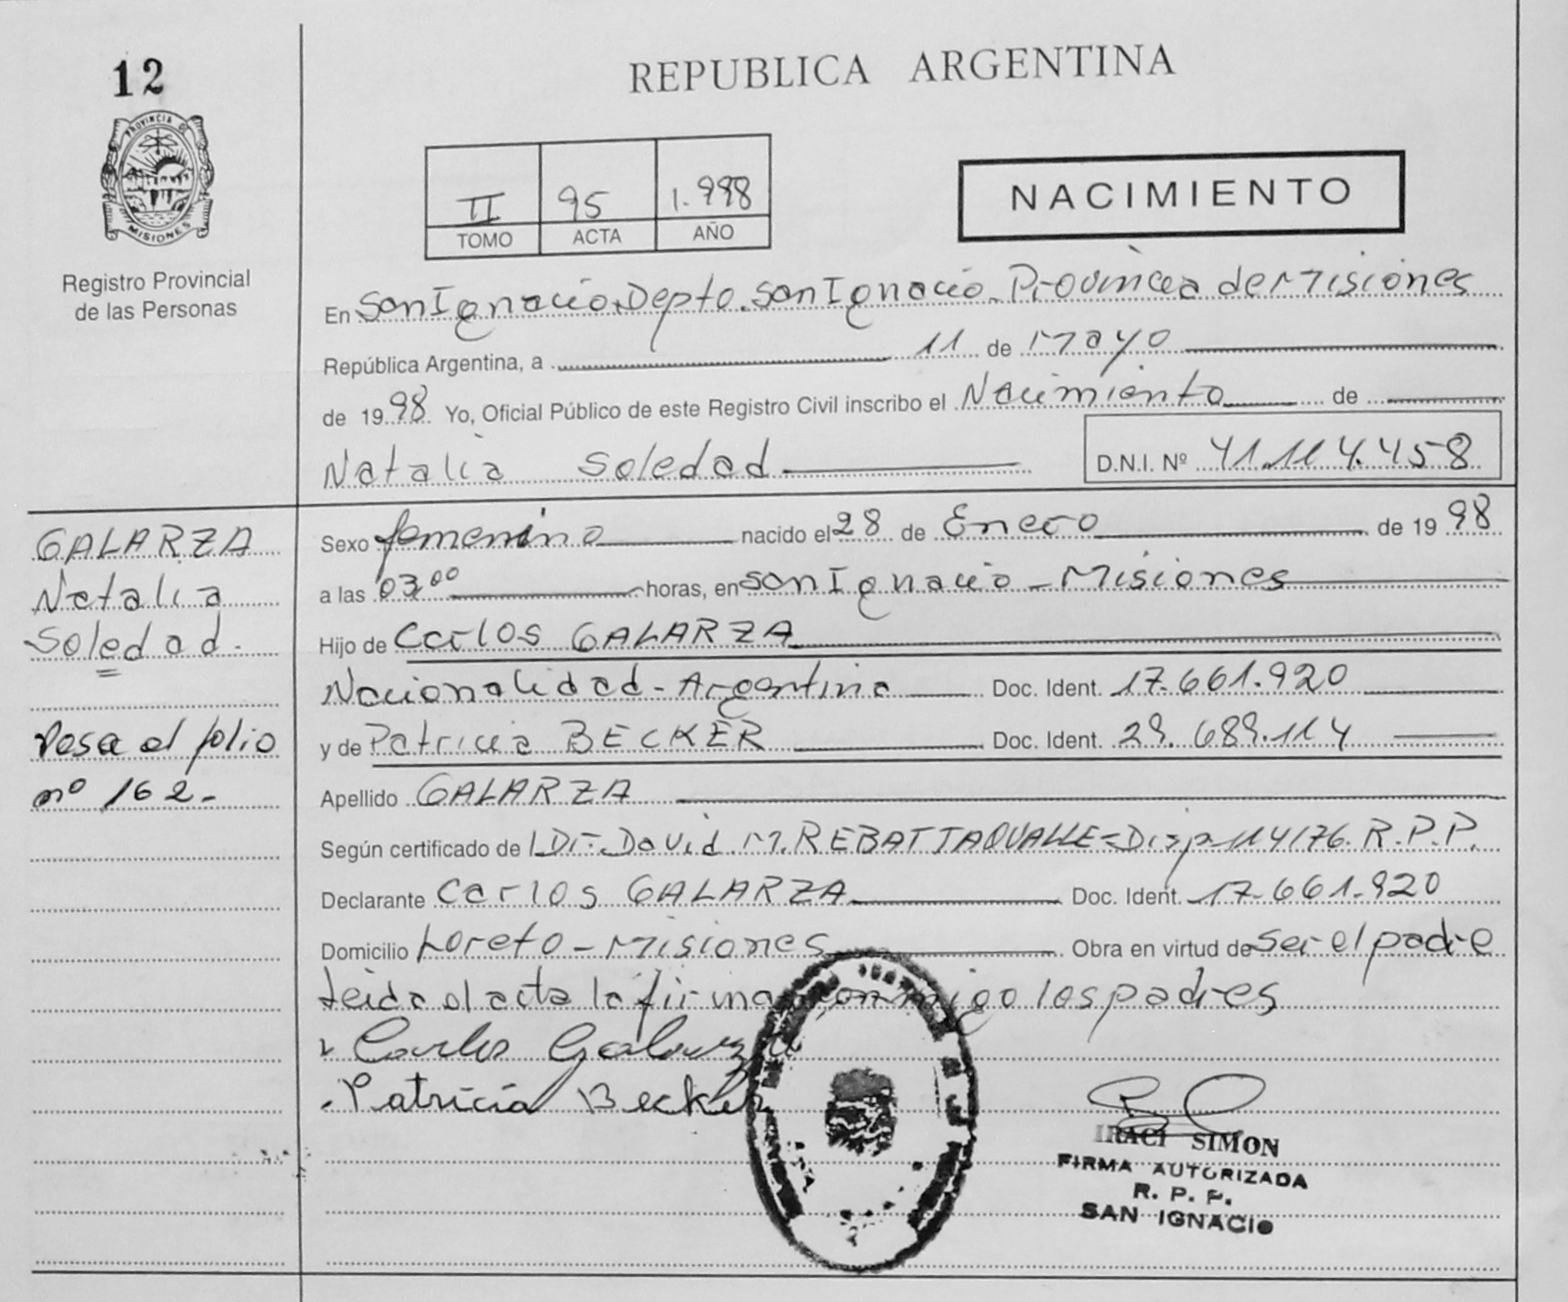 12
REPUBLICA ARGENTINA
PROVINCIA D
MISIONES
Registro Provincial
de las Personas
II 95 1.998
TOMO ACTA AÑO
NACIMIENTO
En San Ignacio. Depto. San Ignacio. Provincia de Misiones
República Argentina, a 11 de Mayo
de 1998 Yo, Oficial Público de este Registro Civil inscribo el Nacimiento de
Natalia Soledad D.N.I. Nº 41.114.458
GALARZA
Natalia
Soledad.
Pasa al folio
nº 162.
Sexo femenino nacido el 28 de Enero de 1998
a las 03,00 horas, en San Ignacio - Misiones
Hijo de Carlos GALARZA
Nacionalidad - Argentina Doc. Ident. 17.661.920
y de Patricia BECKER Doc. Ident. 29.689.114
Apellido GALARZA
Según certificado de Dr. David M. Disp. 114/76. R.P.P.
Declarante Carlos GALARZA Doc. Ident. 17.661.920
Domicilio Loreto - Misiones Obra en virtud de ser el padre
Leida el acta la firman conmigo los padres
Carlos Galarza
Patricia Becker
IRACI SIMON
FIRMA AUTORIZADA
R. P. P.
SAN IGNACIO